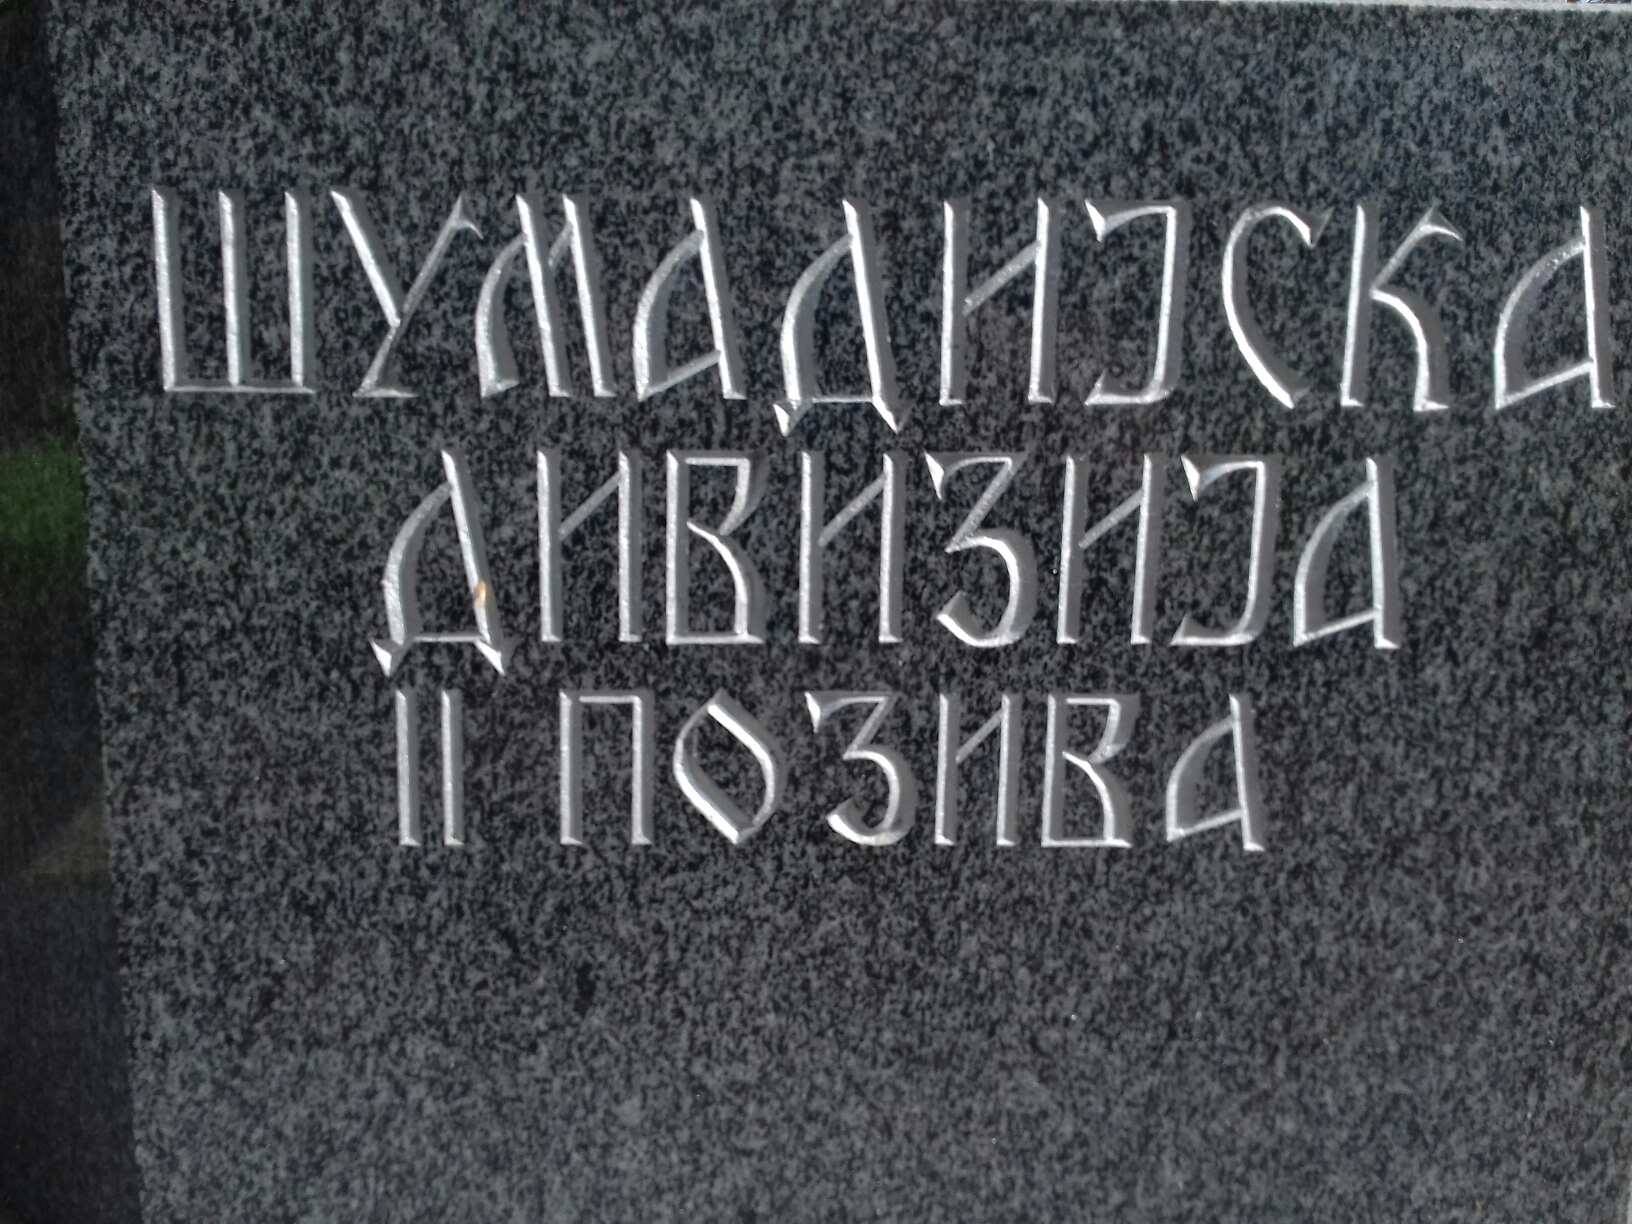 ШУМАДИЈСКА
ДИВИЗИЈА
II ПОЗИВА